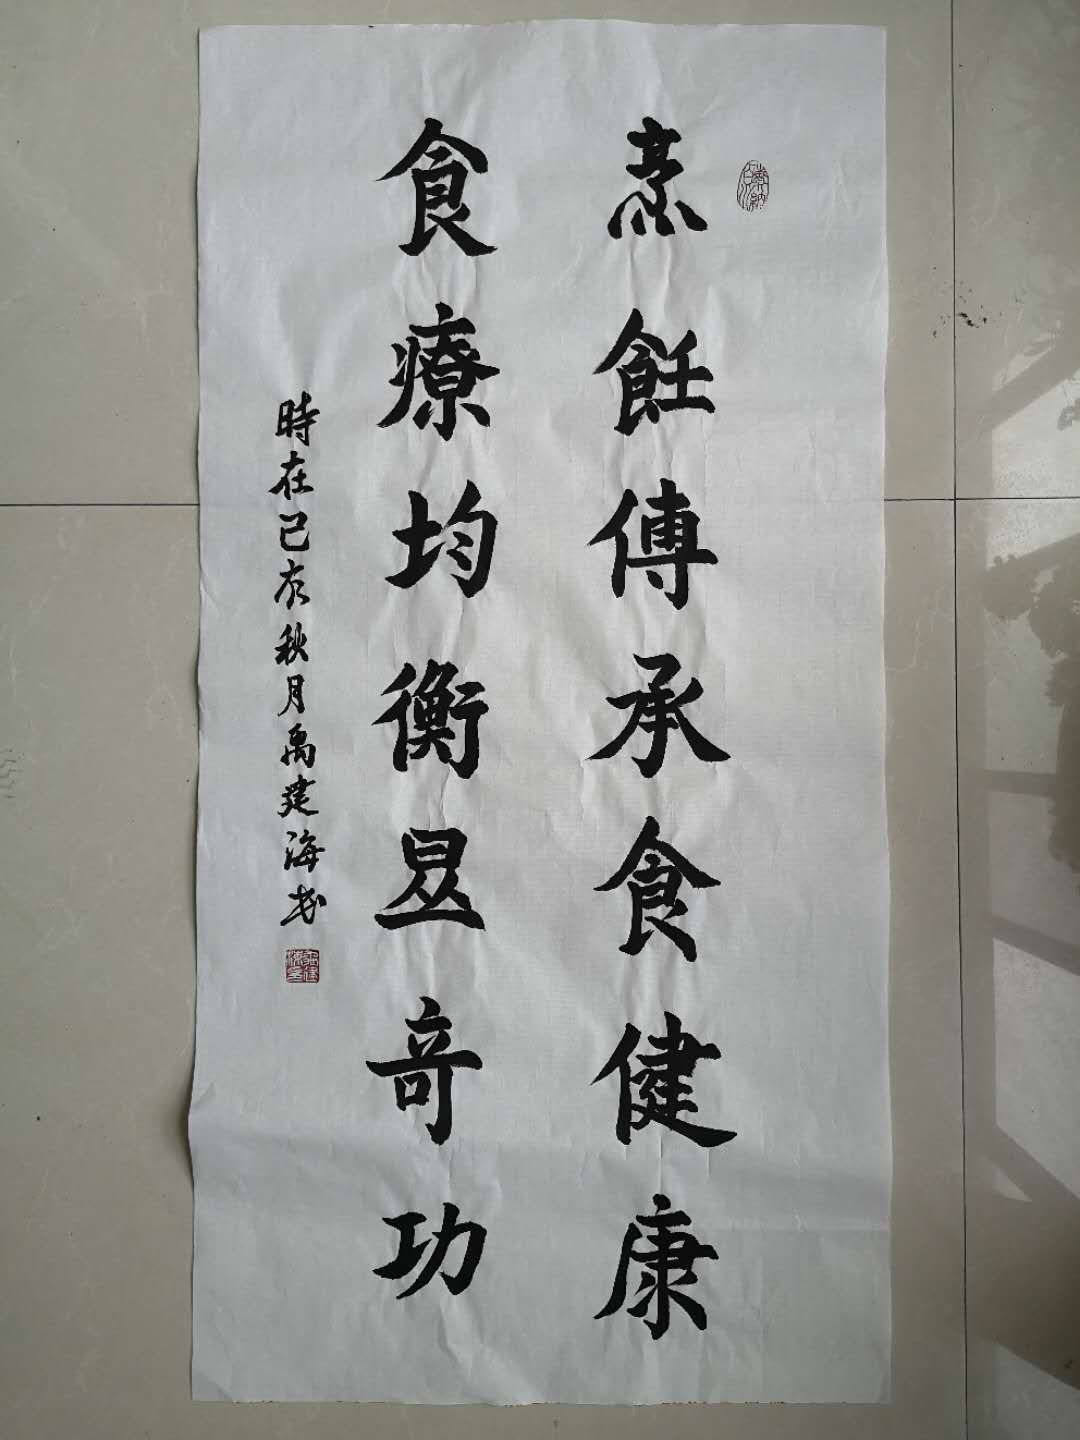 烹飪傳承食健康
食療均衡显奇功
時在己亥秋月禹建海书